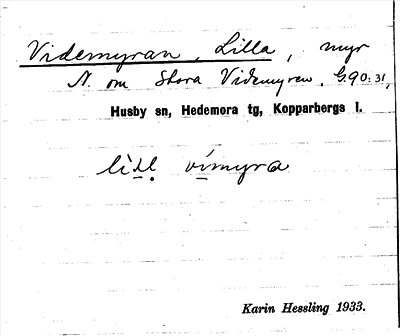 Videmyran, Lilla, myr
N. om Stora Videmyren, G.90:31,
Husby sn, Hedemora tg, Kopparbergs l.
lìtl vímyra
Karin Hessling 1933.